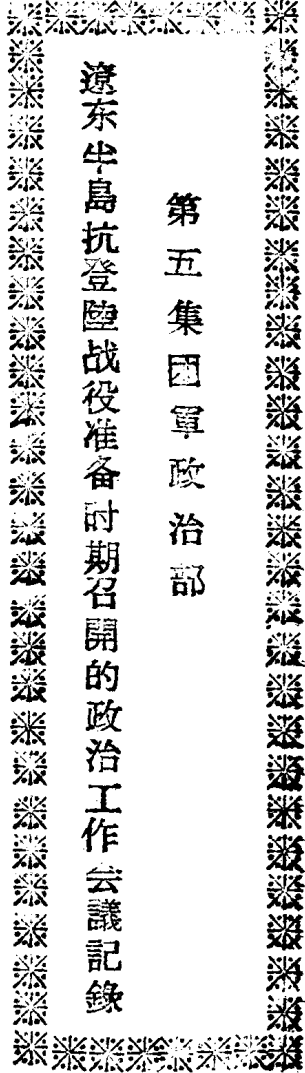 第五集團軍政治部
遼东半島抗登陸战役准备时期召開的政治工作会議記錄